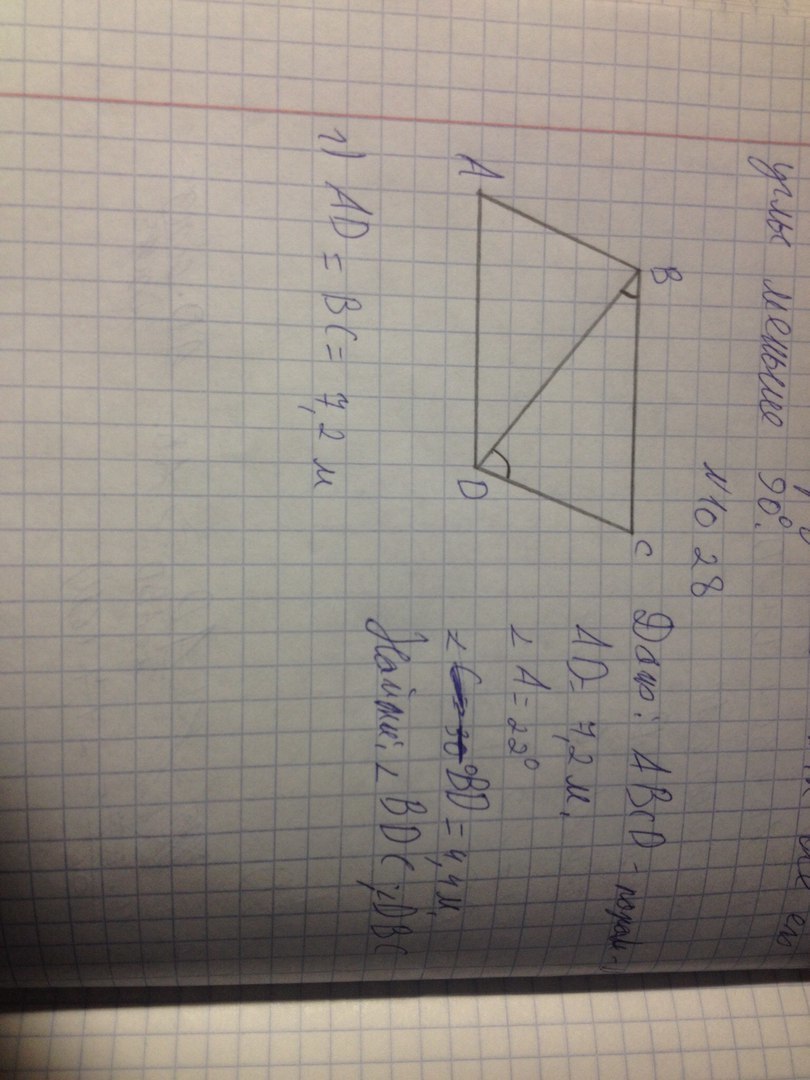 углы меньше 90°.
N 10 28
B
C
A
D
Дано: ABCD - парал-
AD = 7,2 м,
∠ A = 22°
∠ BD = 4,4 м,
Найти: ∠ BDC, ∠DBC
1) AD = BC = 7,2 м